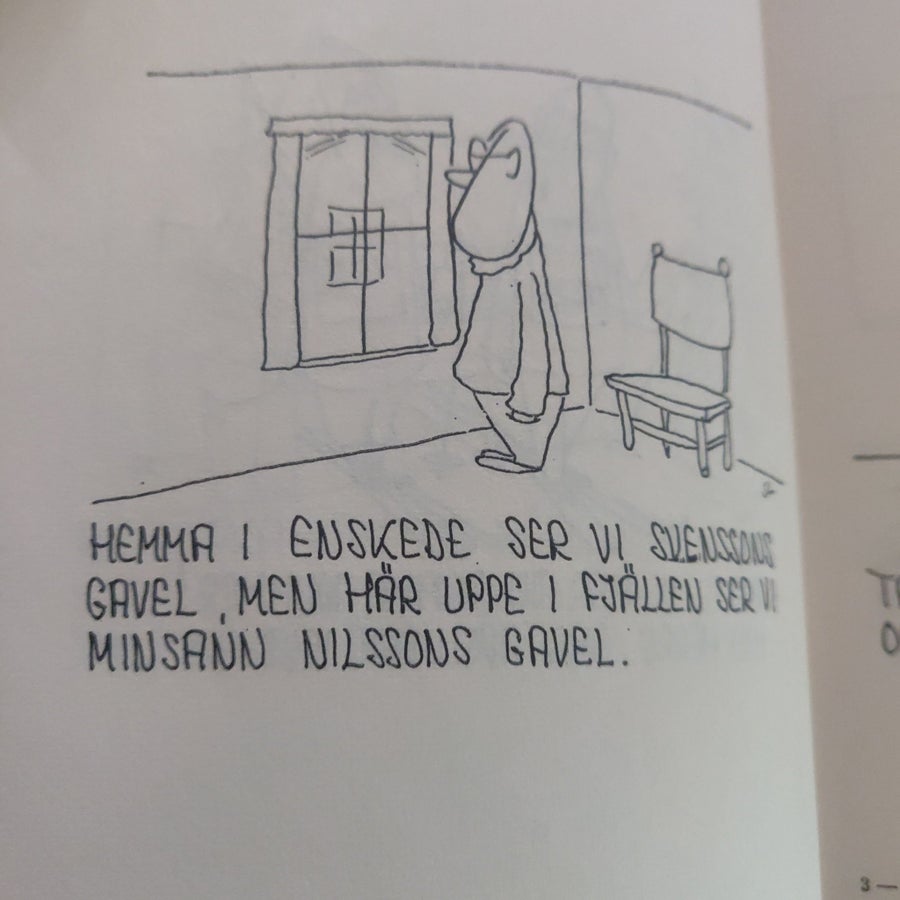 HEMMA I ENSKEDE SER VI SVENSSONS
GAVEL, MEN HÄR UPPE I FJÄLLEN SER VI
MINSANN NILSSONS GAVEL.
3 —